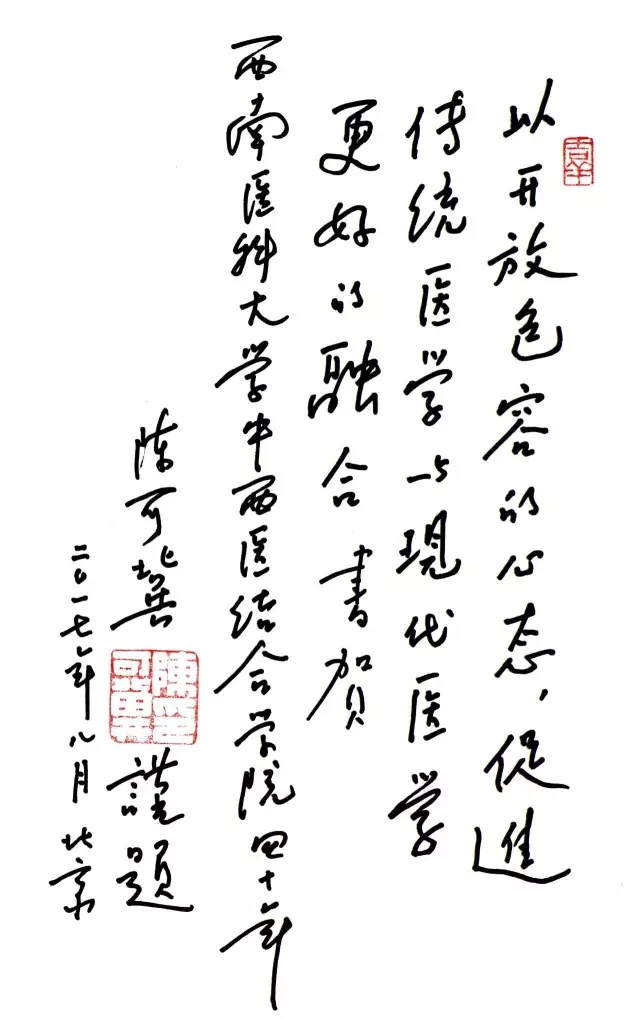 以开放包容的心态，促進
传统医学与现代医学
更好的融合 書贺
西南医科大学中西医结合学院四十年
陈可冀 謹題
二〇一七年八月北京